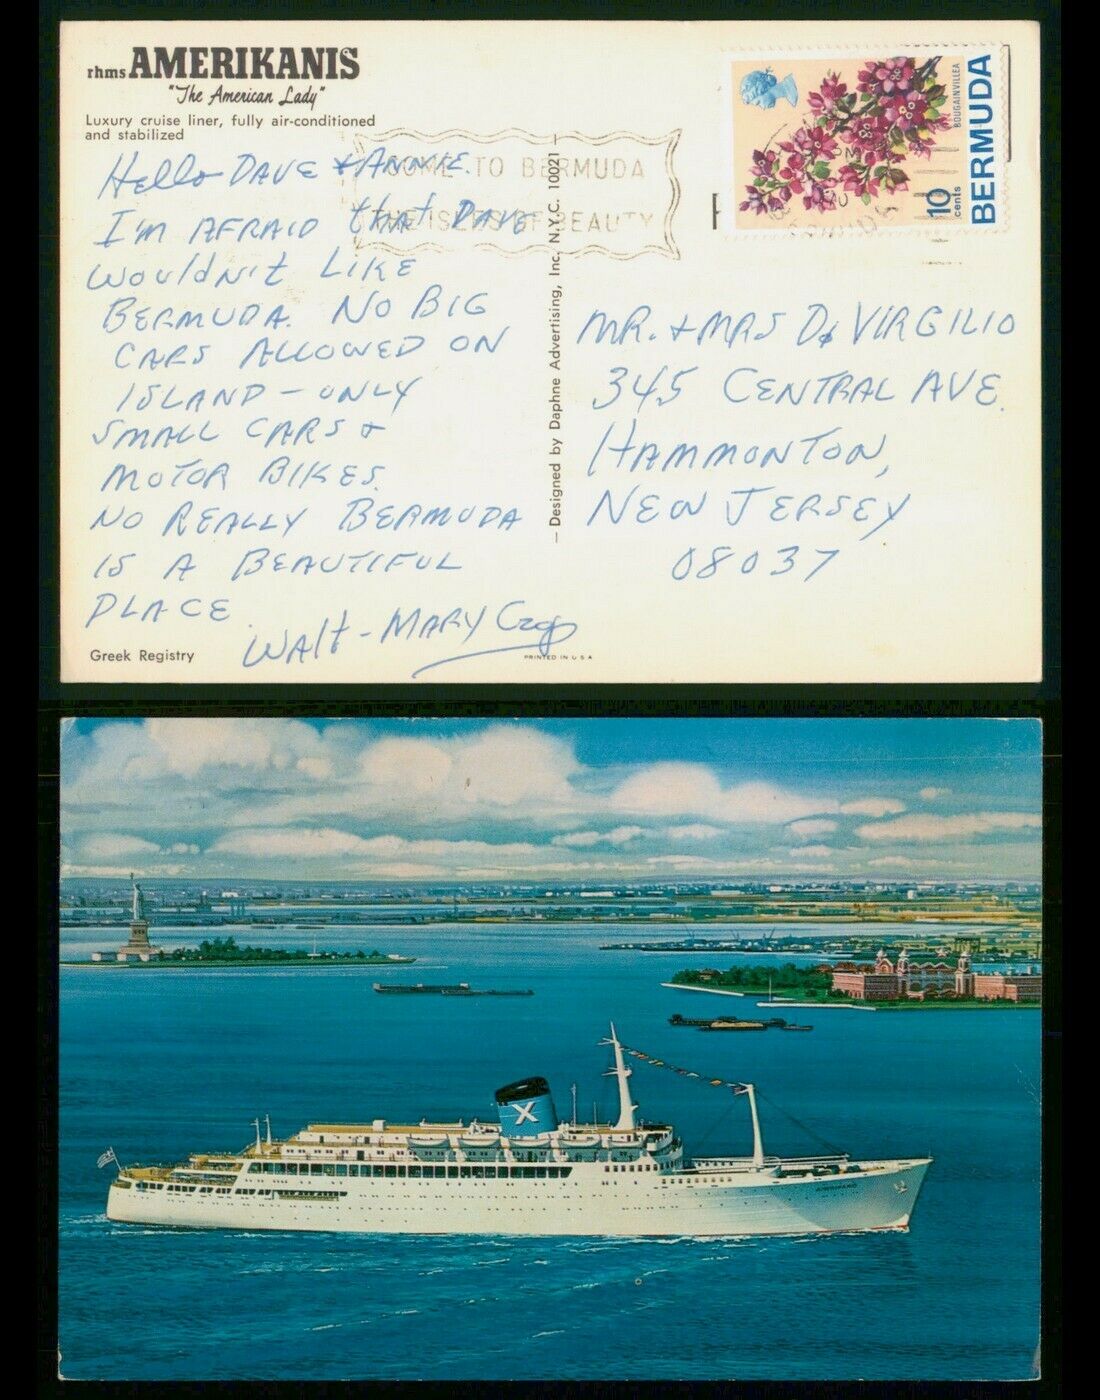 rhms AMERIKANIS
"The American Lady"
Luxury cruise liner, fully air-conditioned
and stabilized
COME TO BERMUDA
THE ISLES OF BEAUTY
BOUGAINVILLEA
10 cents
BERMUDA
Hello DAVE & ANNIE.
I'M AFRAID that DAVE
WOULDN't LIKE
BERMUDA. NO BIG
CARS ALLOWED ON
ISLAND - ONLY
SMALL CARS &
MOTOR BIKES.
NO REALLY BERMUDA
IS A BEAUTIFUL
PLACE.
WALT - MARY
Greek Registry
— Designed by Daphne Advertising, Inc. N.Y.C. 10021 —
MR. & MRS Di VIRGILIO
345 CENTRAL AVE.
HAMMONTON,
NEW JERSEY
08037
PRINTED IN U S A
X